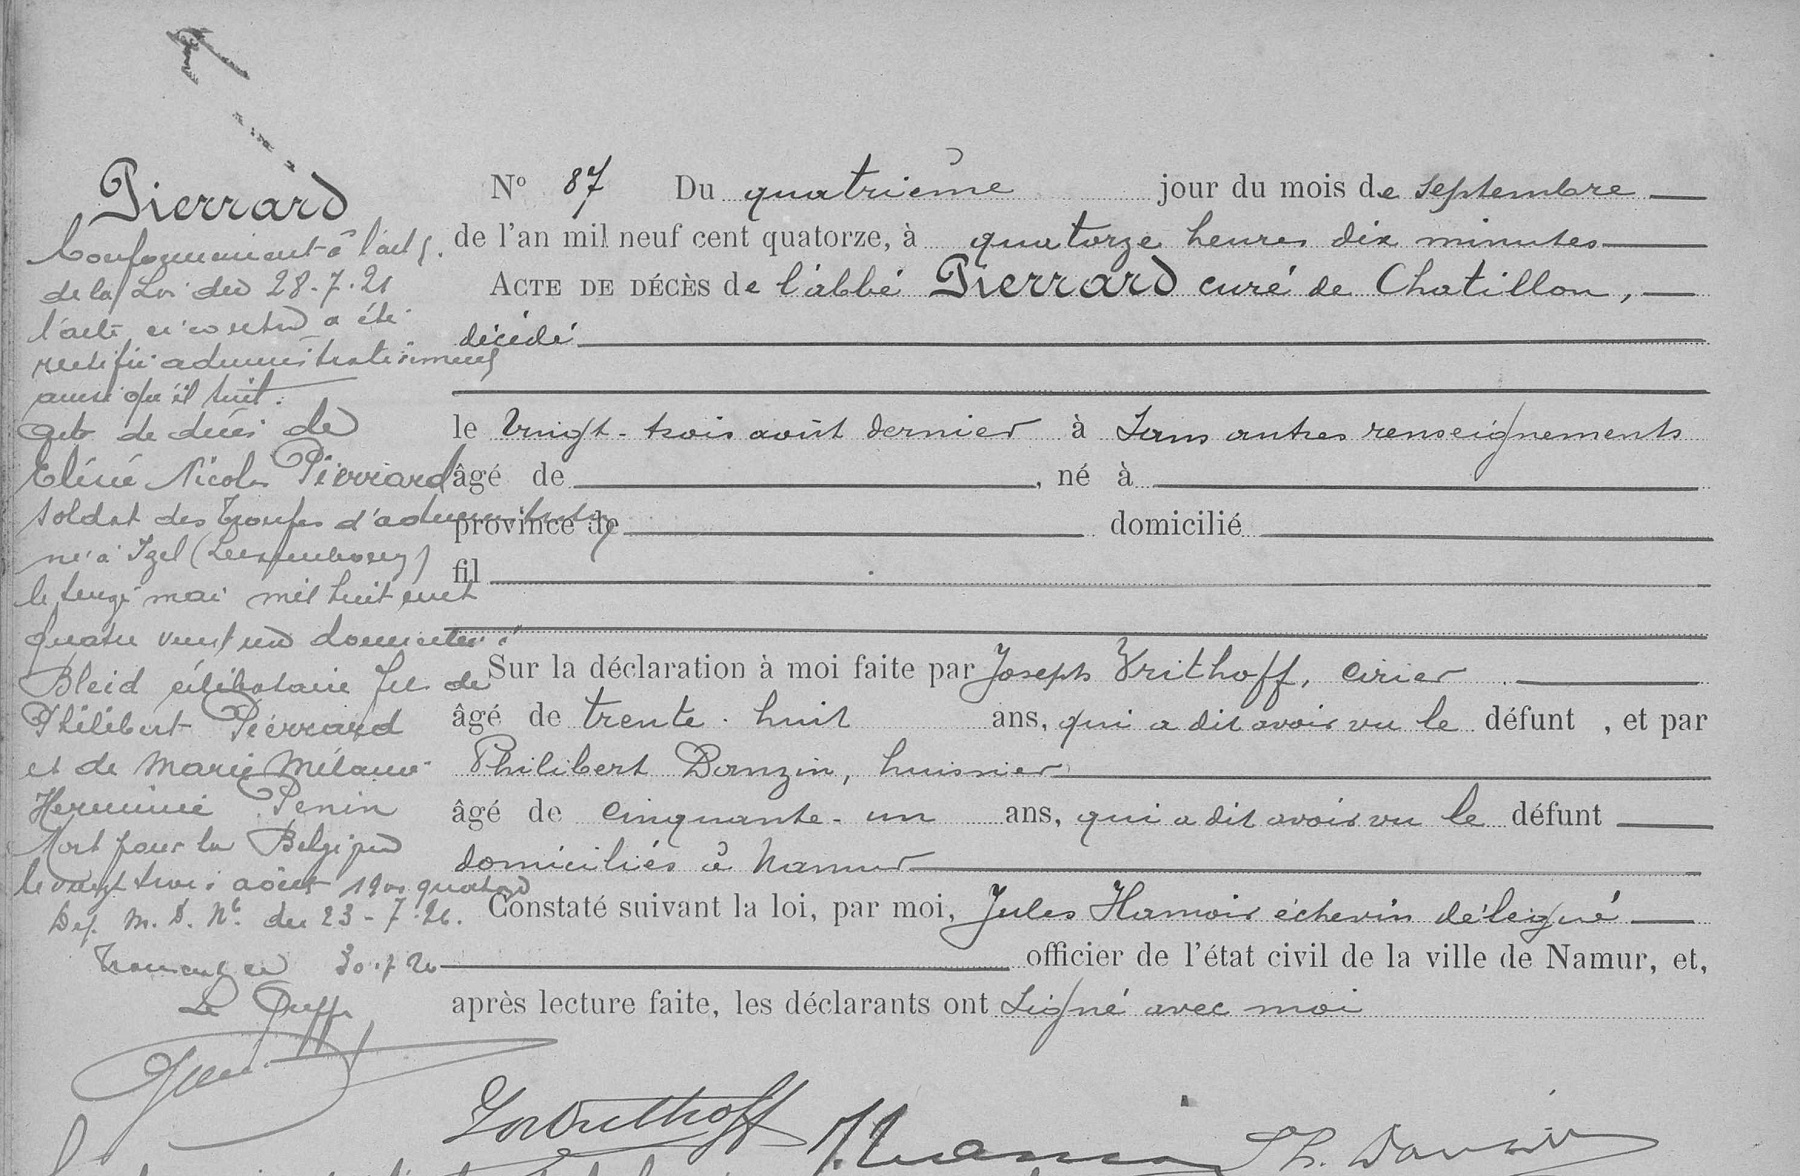 Pierrard
Conformément à l'art 5.
de la Loi du 28-7-21
l'acte ci contre a été
rectifié administrativement
ainsi qu'il suit:
Acte de décès de
Elisée Nicolas Pierrard
soldat des Troupes d'administration
né à Izel (Luxembourg)
le mai mil huit cent
quatre vingt un domicilié à
Bleid célibataire fils de
Philibert Pierrard
et de Marie Mélanie
Herminie Penin
Mort pour la Belgique
le vingt trois août 19 quatorze
Dep. M. D. Nle du 23-7-26.
30.7 26
Le Greff
No 87 Du quatrième jour du mois de septembre
de l'an mil neuf cent quatorze, à quatorze heures dix minutes
ACTE DE DÉCÈS de l'abbé Pierrard curé de Chatillon,
décédé
le vingt-trois août dernier à Sans autres renseignements
âgé de , né à
province de domicilié
fil
Sur la déclaration à moi faite par Joseph Vrithoff, cirier
âgé de trente-huit ans, qui a dit avoir vu le défunt , et par
Philibert Danzin, huissier
âgé de cinquante-un ans, qui a dit avoir vu le défunt
domiciliés à Namur
Constaté suivant la loi, par moi, Jules Hamoir échevin délégué
officier de l'état civil de la ville de Namur, et,
après lecture faite, les déclarants ont signé avec moi
Jos Vrithoff J. Hamoir Ph. Danzin